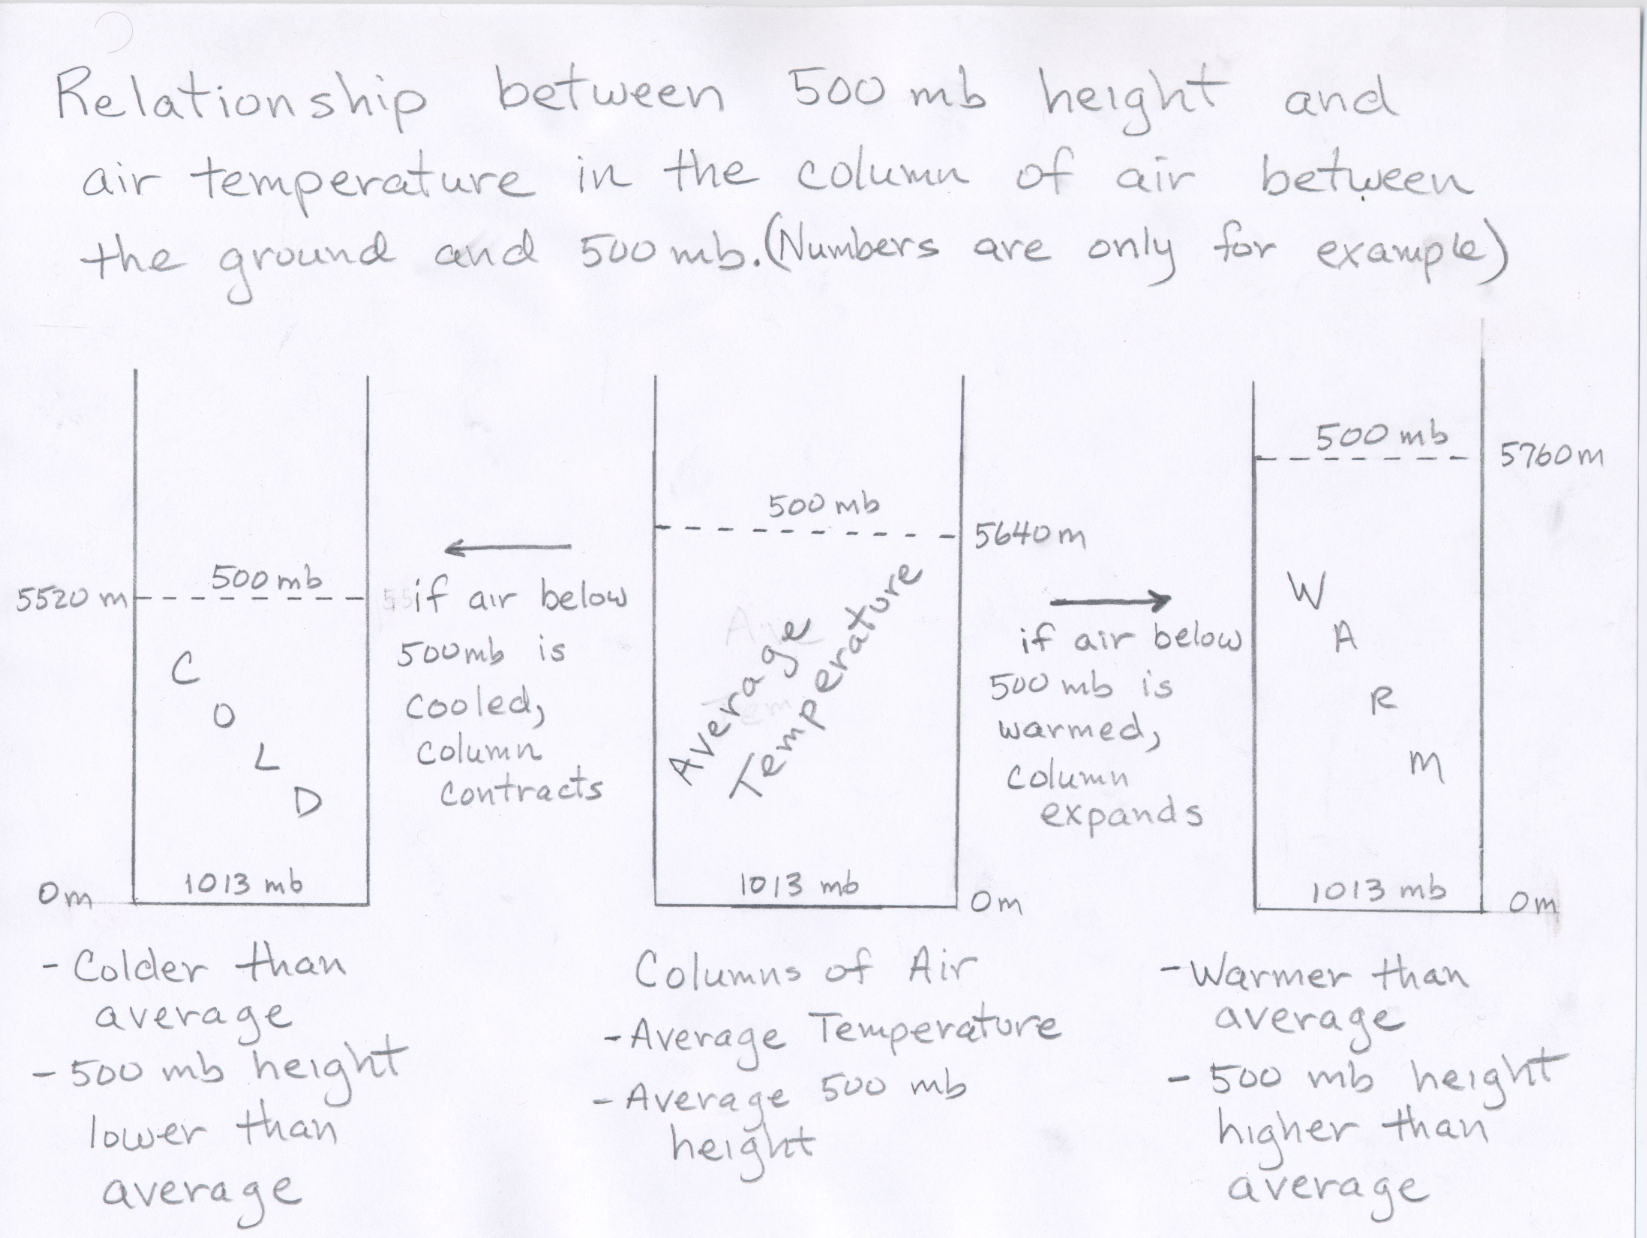 Relationship between 500 mb height and
air temperature in the column of air between
the ground and 500 mb. (Numbers are only for example)
500 mb
5520 m
C
O
L
D
1013 mb
0m
if air below
500mb is
cooled,
column
contracts
500 mb
5640 m
Average
Temperature
1013 mb
0m
if air below
500 mb is
warmed,
column
expands
500 mb
5760 m
W
A
R
M
1013 mb
0m
- Colder than
average
- 500 mb height
lower than
average
Columns of Air
- Average Temperature
- Average 500 mb
height
- Warmer than
average
- 500 mb height
higher than
average